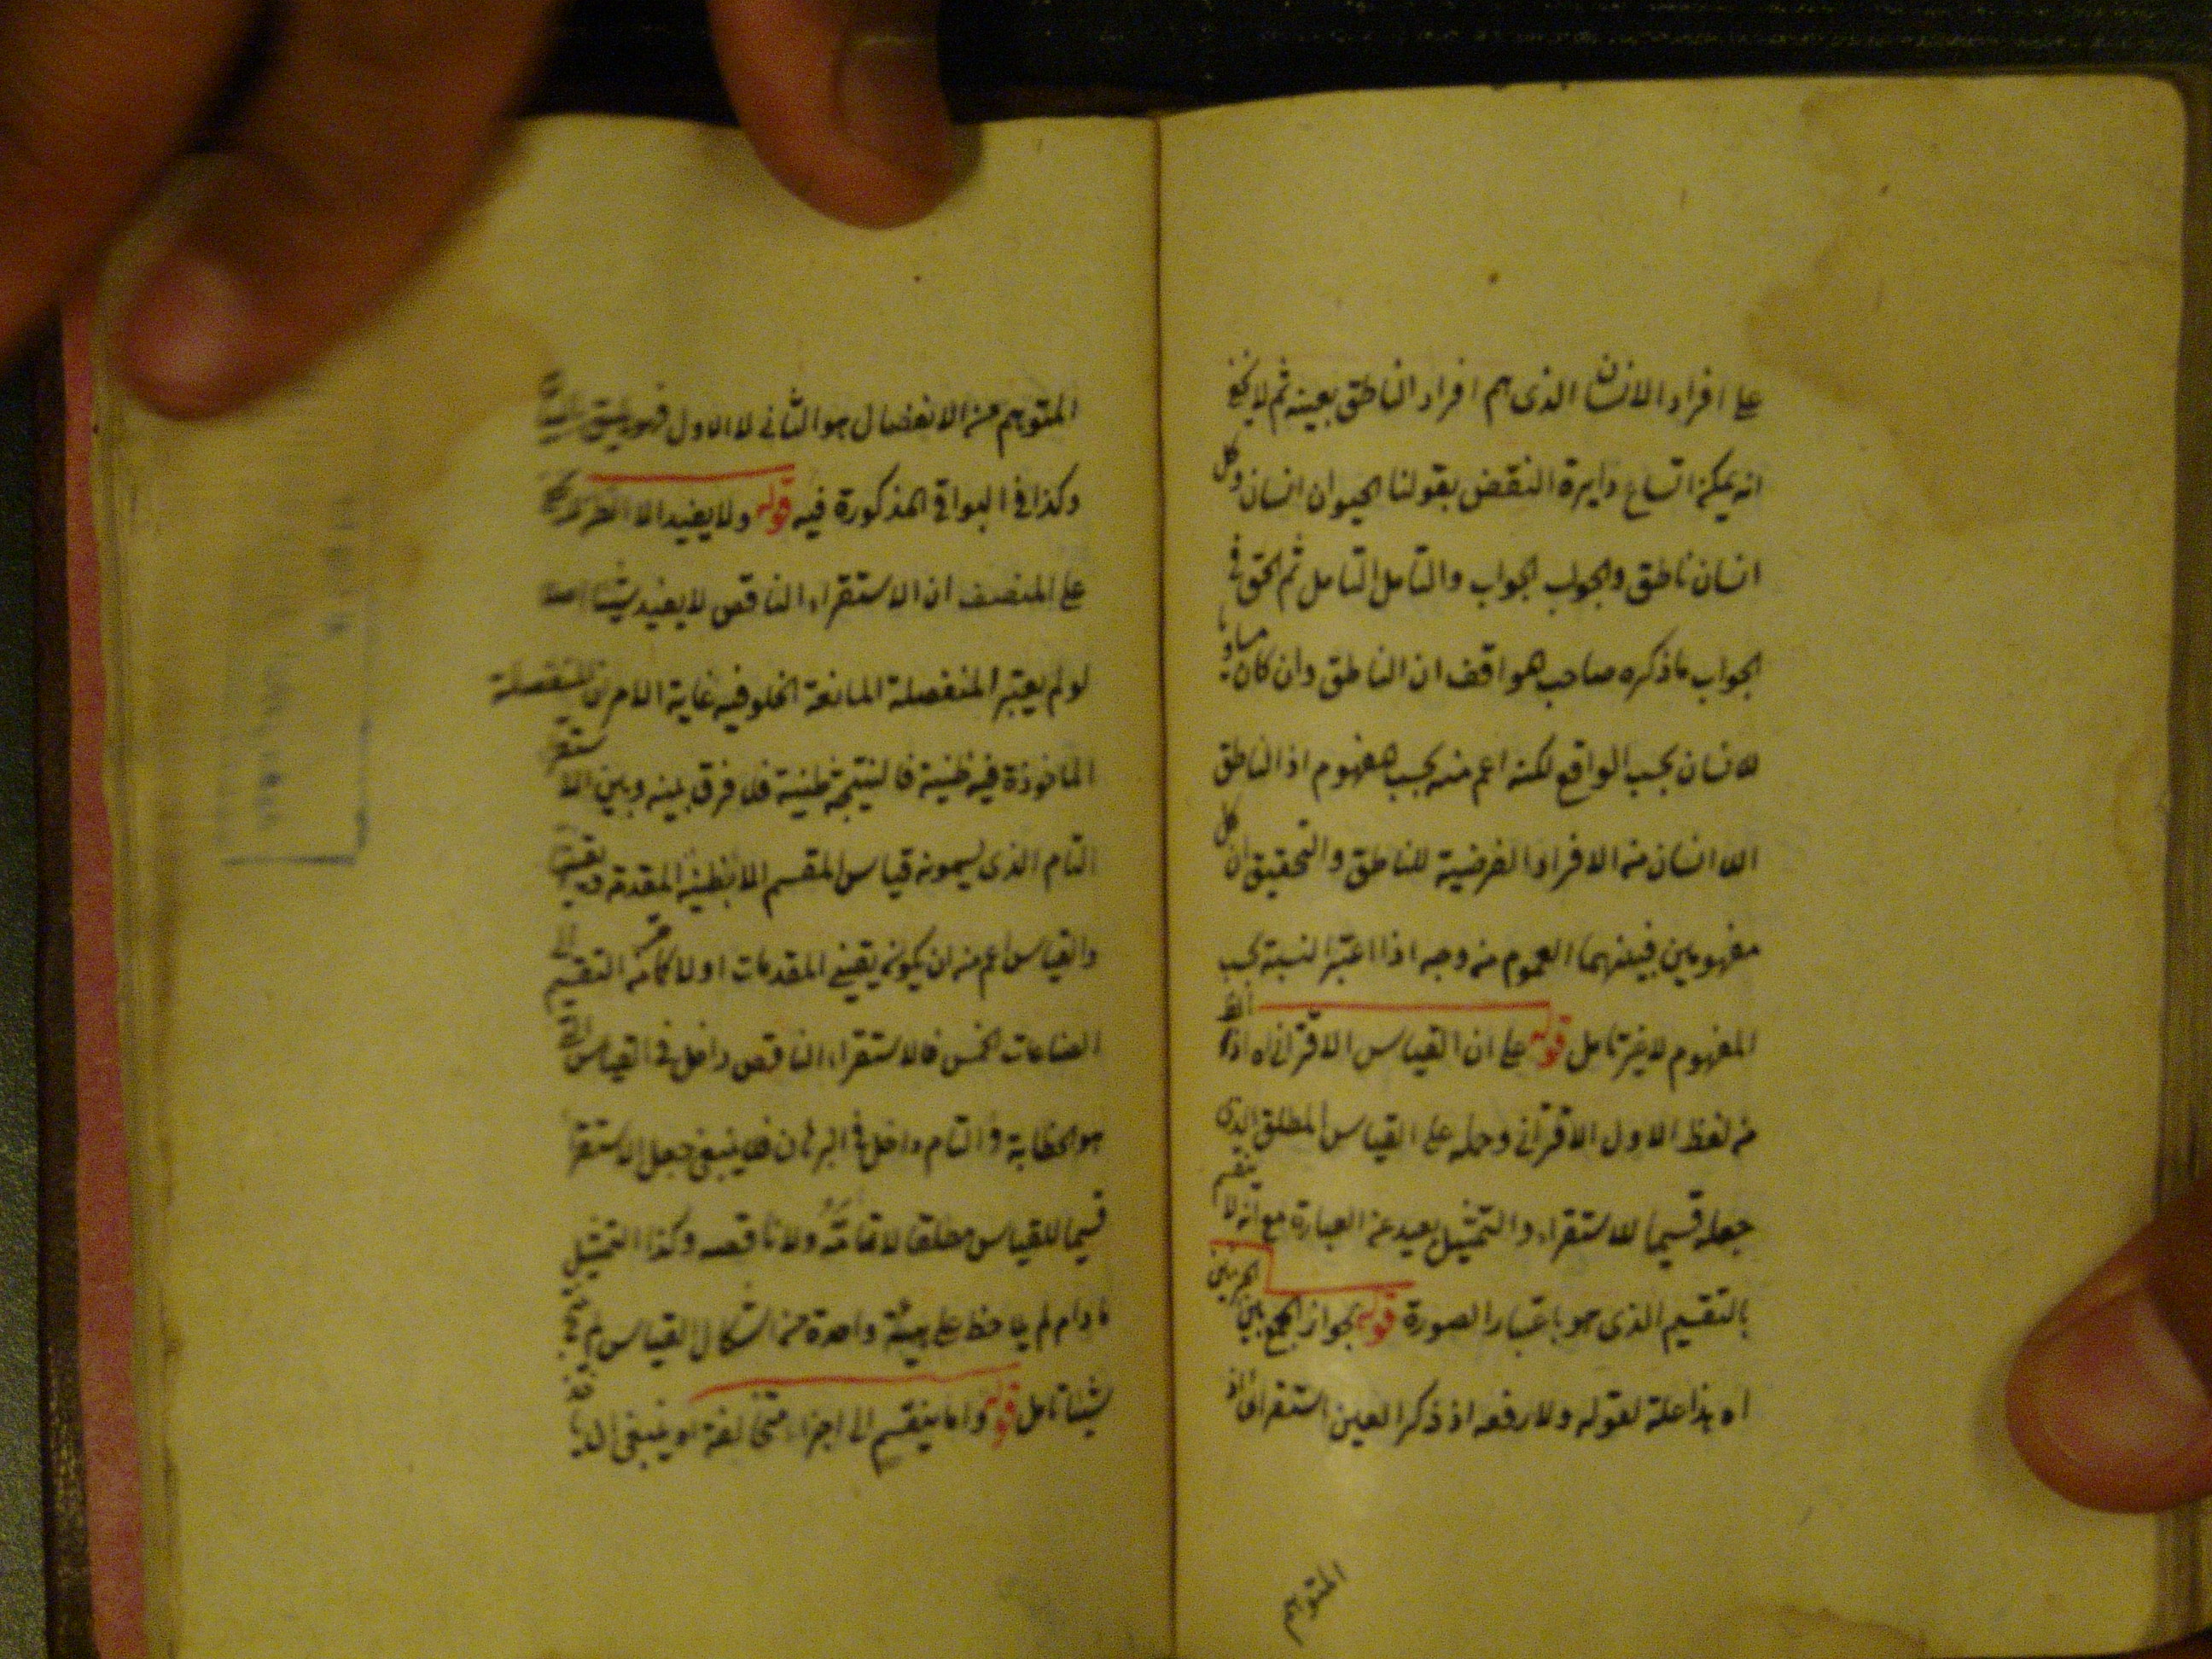 على افراد الانسان الذى هم افراد الناطق بعينه ثم لا يخفى
انه يمكن اتساع دايرة النقض بقولنا الحيوان انسان وكل
انسان ناطق والجواب الجواب والتامل التامل ثم الحق فى
الجواب ما ذكره صاحب هو اقف ان الناطق وان كان مساويا
للانسان بحسب الواقع لكنه اعم منه بحسب مفهوم اذ الناطق
اللا انسان من الافراد الفرضية للناطق والتحقيق ان كل
مفهومين فبينهما العموم من وجه اذا اعتبر النسبة بحسب
المفهوم لا غير تامل قوله على ان القياس الاقترانى اه اذ
من لفظ الاول الاقترانى وحمله على القياس المطلق الذى
جعله قسيما للاستقراء والتمثيل بعيد عن العبارة مع انه لا ينقسم
بالتقسيم الذى هو باعتبار الصورة قوله بجواز الجمع بين
اه هذا علة لقوله ولا رفعه اذ ذكر العين استقرائى اذ
المتوهم
المتوهم من الانفصال هو الثانى لا الاول فهو
وكذا فى البواقى المذكورة فيه قوله ولا يفيد الا الظن
على المنصف ان الاستقراء الناقص لا يفيد شيئا اصلا
لو لم يعتبر المنفصلة المانعة الخلو فيه غاية الامر ان المنفصلة
الماخوذة فيه ظنية فالنتيجة ظنية فلا فرق بينه وبين الاستقراء
التام الذى يسمونه قياس المقسم الا بظنية المقدمة
والقياس اعم من ان يكون يقينى المقدمات اولا كما مر من التقسيم الى
الصناعات الخمس فالاستقراء الناقص داخل فى القياس
هو الخطابة والتام داخل فى البرهان فلا ينبغى جعل الاستقراء
قسيما للقياس مطلقا لا تامه ولا ناقصه وكذا التمثيل
مادام لم يلاحظ على هيئة واحدة من اشكال القياس لم
شيئا تامل قوله واما ينقسم الى اجزاء متخالفة او ينبغى ان